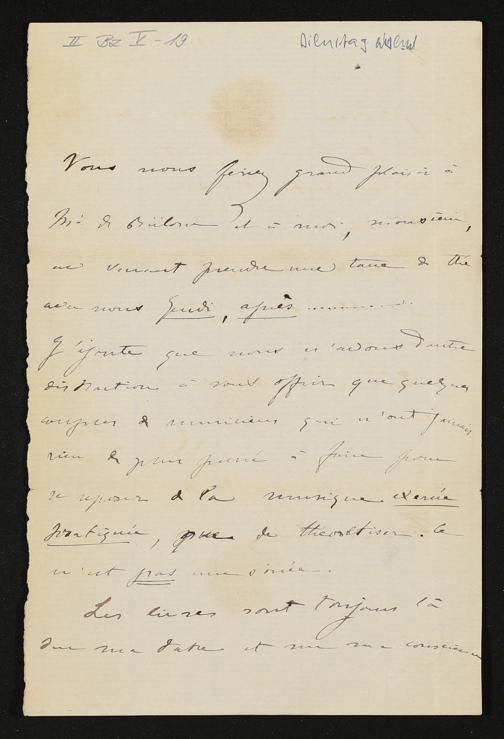 II Bz V - 19
Dienstag
Vous nous feriez grand plaisir à
Mr de Bülow et à moi, monsieur,
en venant prendre une tasse de thé
avec nous Jeudi, après
J'ajoute que nous n'avons d'autre
distraction à vous offrir que quelques
de musiciens qui n'ont jamais
rien de plus pressé à faire pour
se reposer de la musique exercée
pratiquée, que de théoretiser. Ce
n'est pas une soirée.
Les livres sont toujours là
sur ma table et sur ma conscience